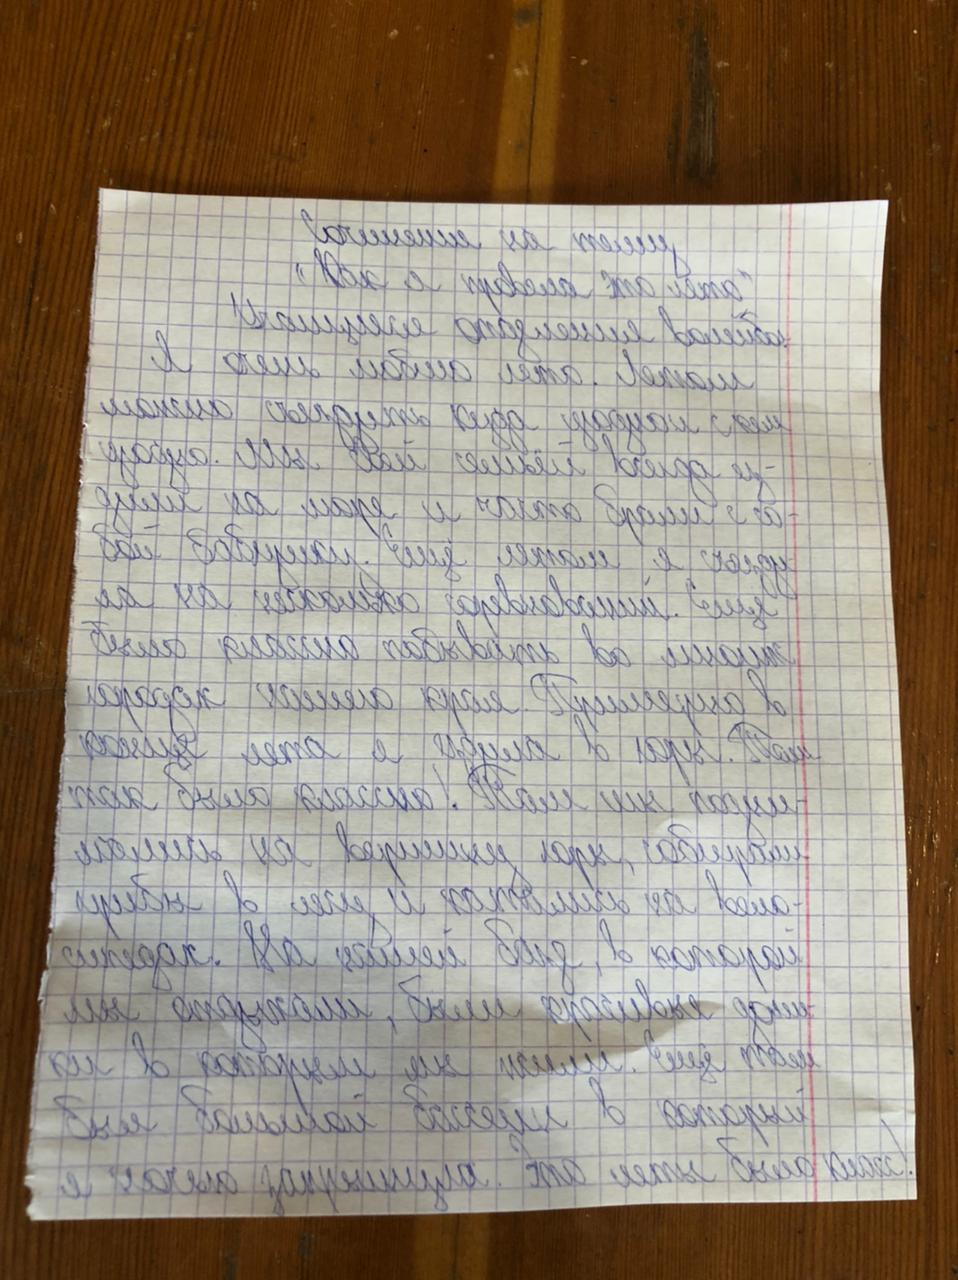 Сочинение на тему
"Как я провела это лето"
Учащиеся отделения волейбол
Я очень люблю лето. Летом
можно съездить куда угодно с кем
угодно. Мы всей семьёй всегда ез-
дили на море и часто брали с со-
бой бабушку. Ещё летом я съезди
ла на несколько соревнований. Ещё
было классно побывать во многих
городах нашего края. Примерно в
конце лета я ездила в горы. Там
так было классно! Там мы подни-
мались на вершину горы, собирали
грибы в лесу и катались на вело-
сипедах. На нашей базе, в которой
мы отдыхали, были красивые доми-
ки в котором мы жили. Ещё там
был большой бассейн в который
я ночью запрыгнула. Это лето было класс!